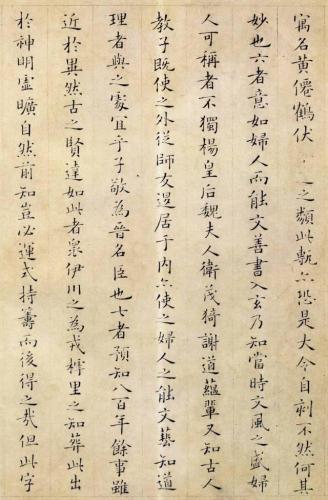 寓名黄僊鶴伏之類此軌亦恐是大令自刻不然何其
妙也六者意如婦人而能文善書入玄乃知當時文風之盛婦
人可稱者不獨楊皇后魏夫人衛茂猗謝道蘊輩又知古人
教子既使之外從師友退居于内亦使之婦人之能文藝知道
理者與之處宜乎子敬為晉名臣也七者預知八百年餘事雖
近於異然古之賢達如此者衆伊川之為戎樗里之知葬此出
於神明虛曠自然前知豈必運式持籌而後得之哉但此字